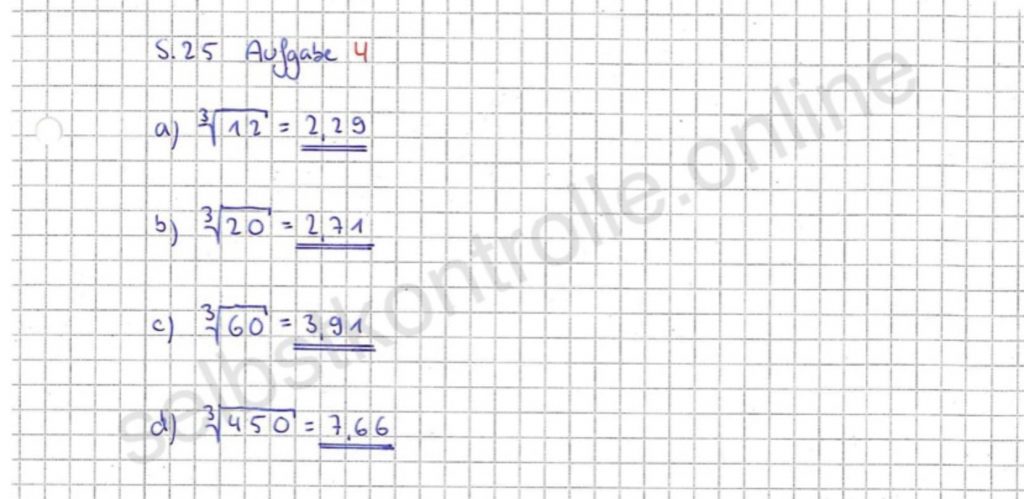 S.25 Aufgabe 4
a) ³√12 = 2,29
b) ³√20 = 2,71
c) ³√60 = 3,91
d) ³√450 = 7,66
selbstkontrolle.online